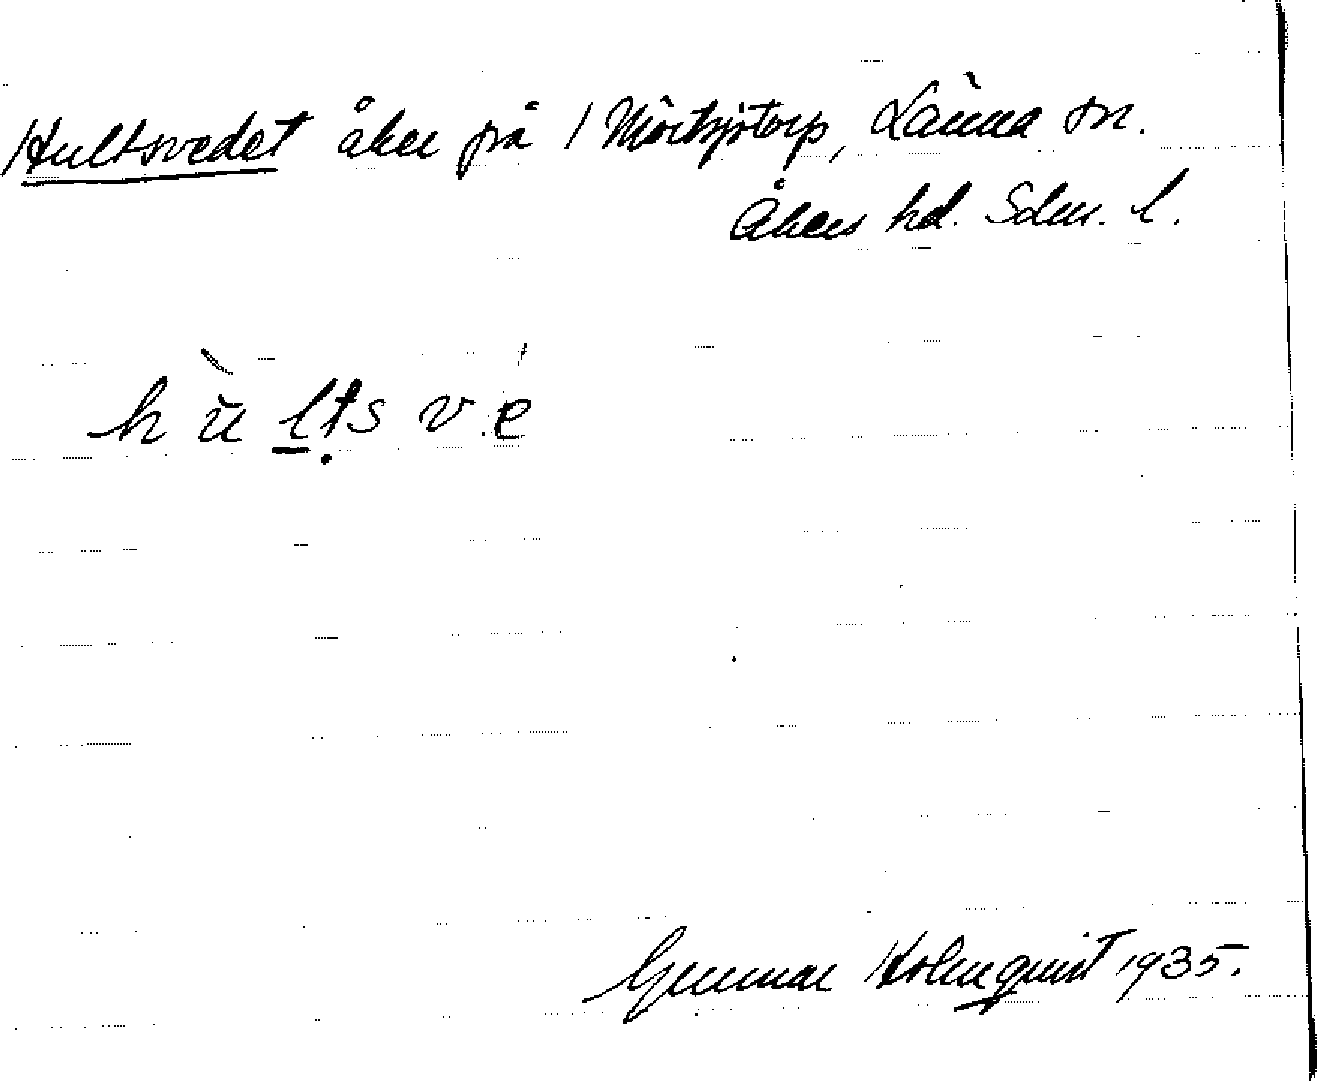 Hultsvedet åker på Mörbytorp, Länna sn.
Åkers hd. Sdm. l.
hùltsvé
Gunnar Holmquist 1935.